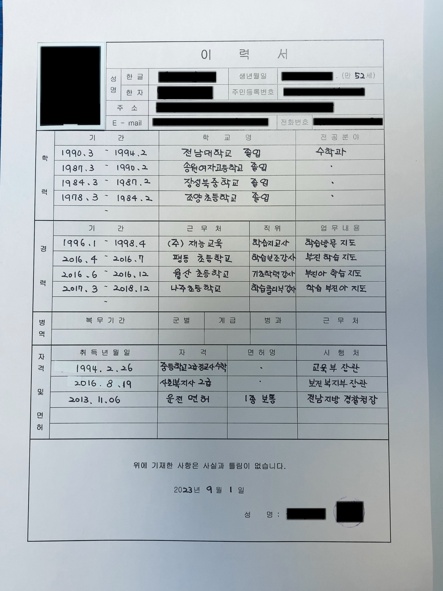 이 력 서
성 명 한글 생년월일 . (만 52세)
한자 주민등록번호
주 소
E - mail 전화번호
학 력
기 간 학 교 명 전 공 분 야
1990. 3 - 1994. 2 전남대학교 졸업 수학과
1987. 3 - 1990. 2 송원여자고등학교 졸업 .
1984. 3 - 1987. 2 장성북중학교 졸업 .
1978. 3 - 1984. 2 조양초등학교 졸업 .
-
경 력
기 간 근 무 처 직위 업무내용
1996. 1 - 1998. 4 (주) 재능교육 학습지교사 학습방문 지도
2016. 4 - 2016. 7 평동 초등학교 학습보조강사 부진 학습지도
2016. 6 - 2016. 12 월산 초등학교 기초학력강사 부진아 학습 지도
2017. 3 - 2018. 12 나주초등학교 학습클리닉강사 학습 부진아 지도
-
병역
복 무 기 간 군 별 계 급 병 과 근 무 처
자격 및 면허
취 득 년 월 일 자 격 면 허 명 시 행 처
1994. 2. 26 중등학교2급정교사수학 . 교육부 장관
2016. 8. 19 사회복지사 2급 . 보건복지부 장관
2013. 11. 06 운전 면허 1종 보통 전남지방 경찰청장
위에 기재한 사항은 사실과 틀림이 없습니다.
2023년 9 월 1 일
성 명 :